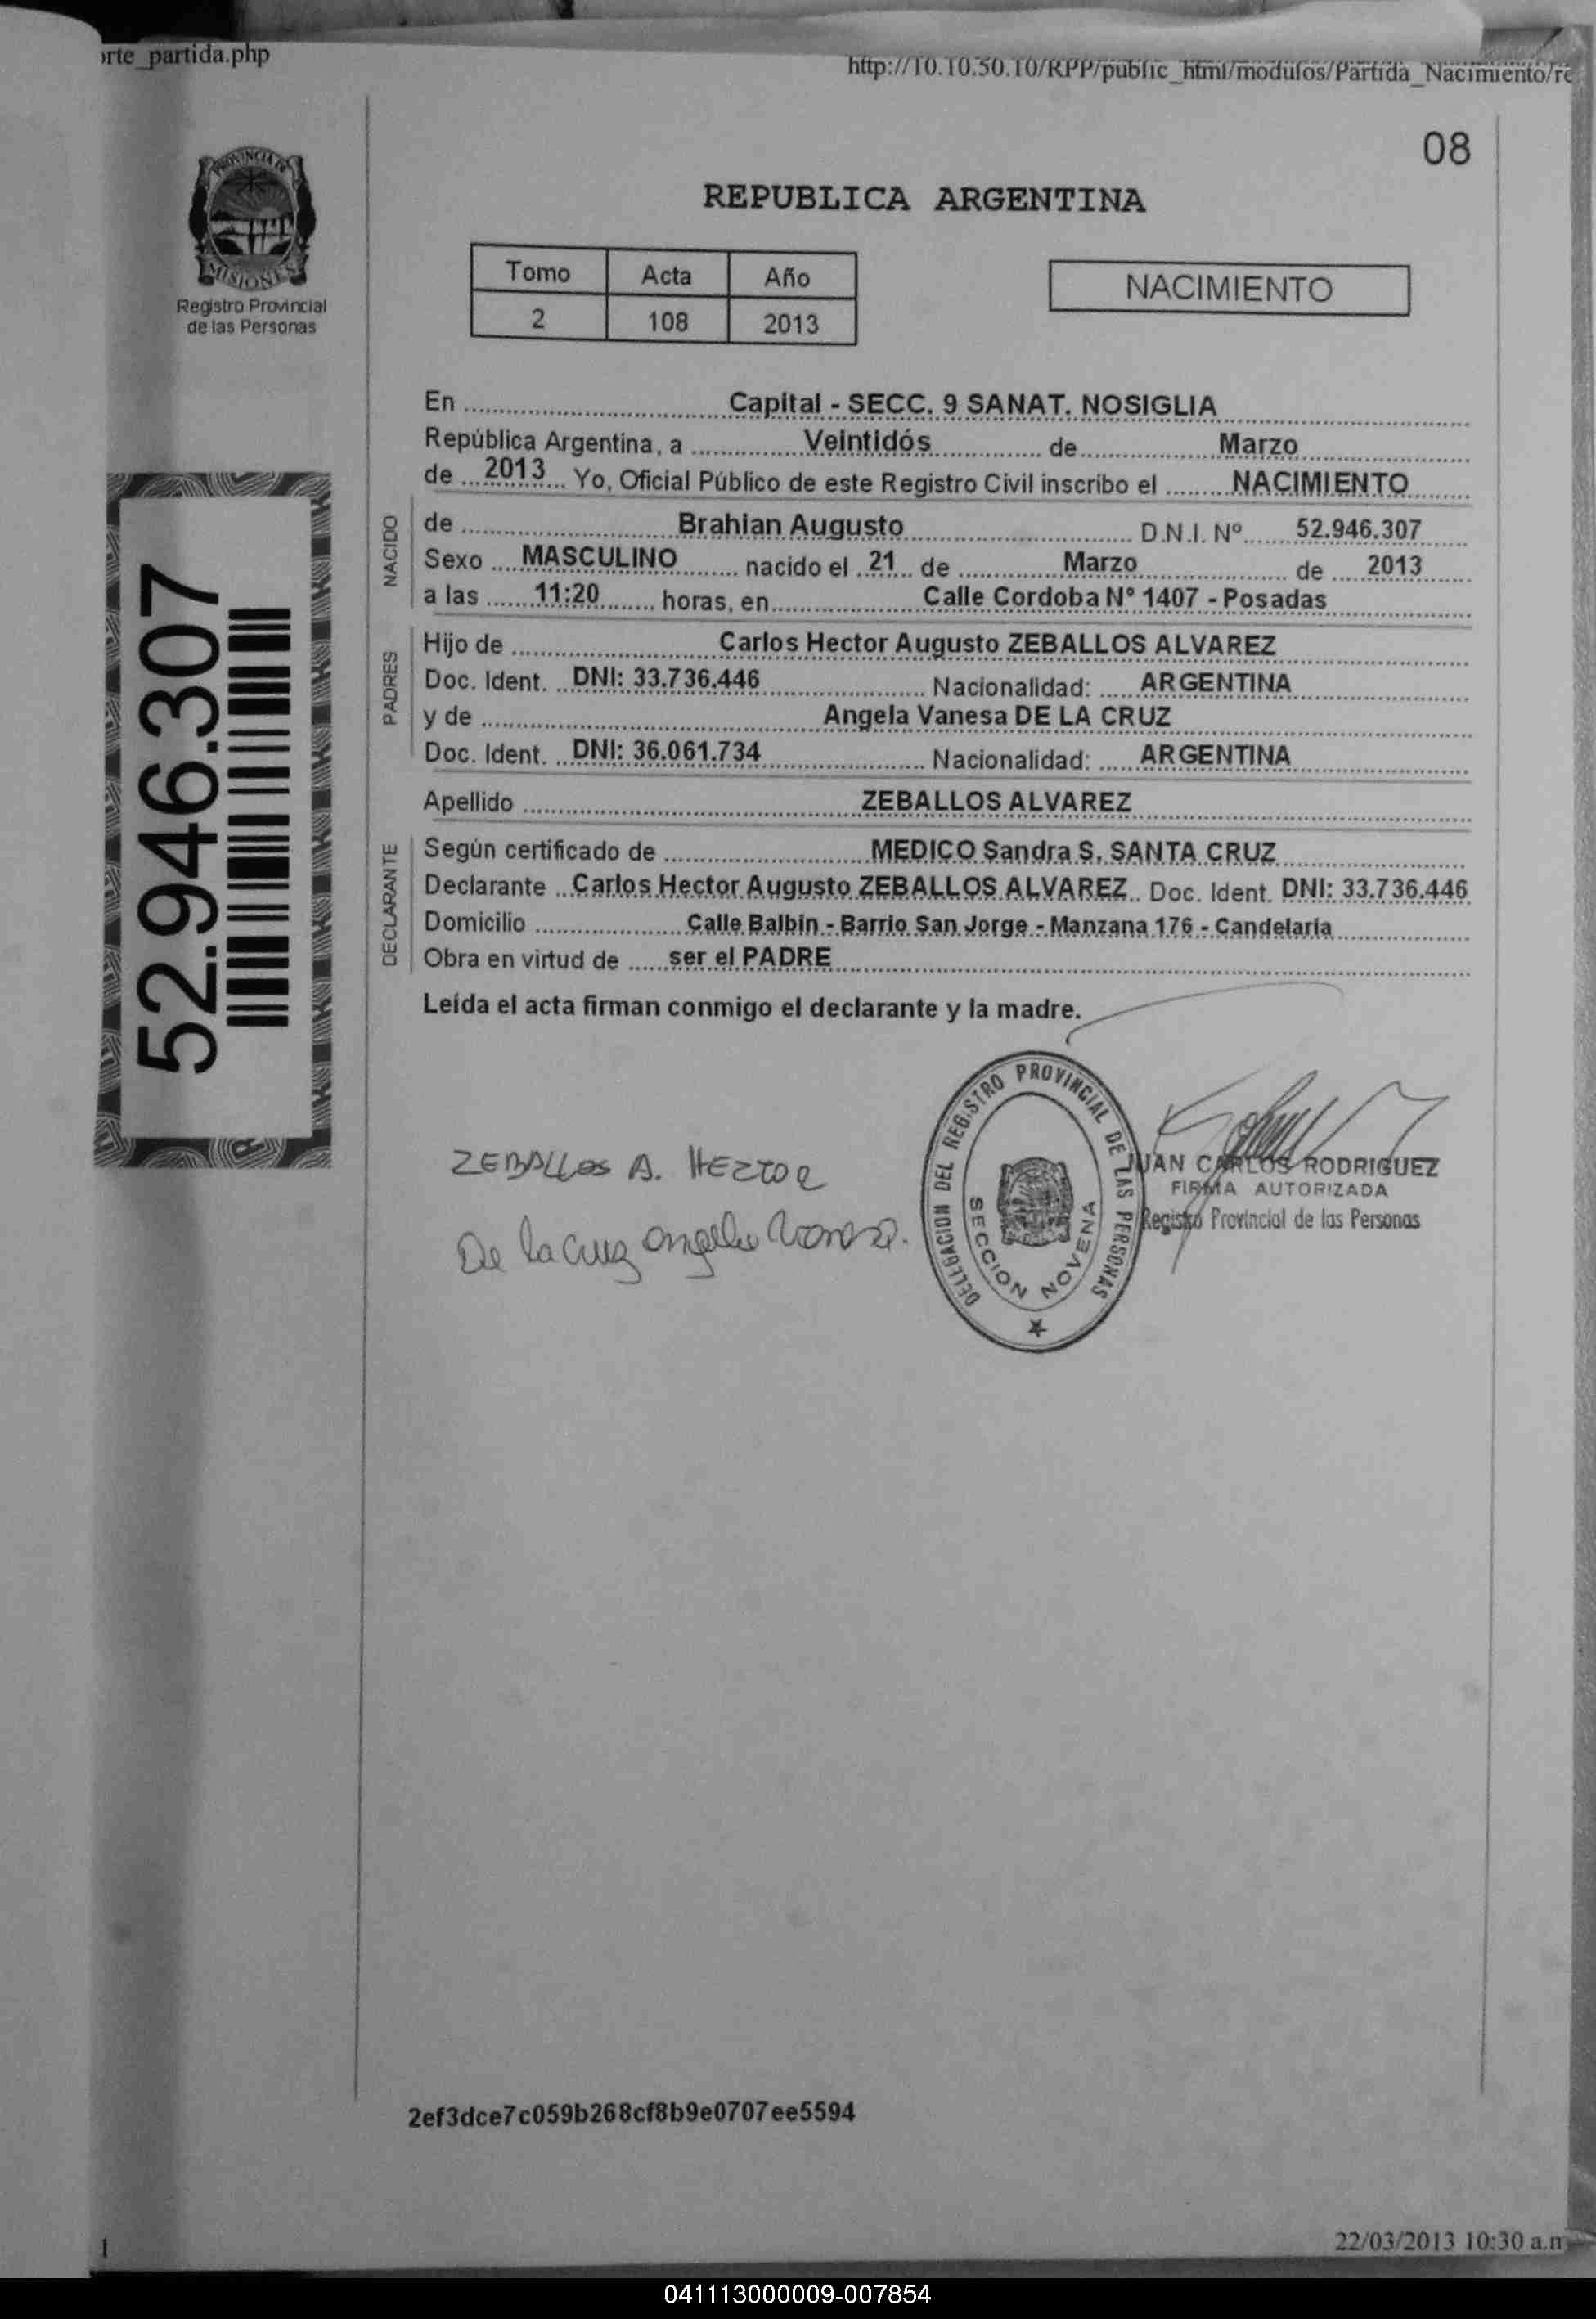 orte_partida.php
http://10.10.50.10/RPP/public_html/modulos/Partida_Nacimiento/re
08
PROVINCIA DE
MISIONES
Registro Provincial
de las Personas
REPUBLICA ARGENTINA
Tomo Acta Año
2 108 2013
NACIMIENTO
En Capital - SECC. 9 SANAT. NOSIGLIA
República Argentina, a Veintidós de Marzo
de 2013 Yo, Oficial Público de este Registro Civil inscribo el NACIMIENTO
NACIDO
de Brahian Augusto D.N.I. Nº 52.946.307
Sexo MASCULINO nacido el 21 de Marzo de 2013
a las 11:20 horas, en Calle Cordoba Nº 1407 - Posadas
PADRES
Hijo de Carlos Hector Augusto ZEBALLOS ALVAREZ
Doc. Ident. DNI: 33.736.446 Nacionalidad: ARGENTINA
y de Angela Vanesa DE LA CRUZ
Doc. Ident. DNI: 36.061.734 Nacionalidad: ARGENTINA
Apellido ZEBALLOS ALVAREZ
DECLARANTE
Según certificado de MEDICO Sandra S. SANTA CRUZ
Declarante Carlos Hector Augusto ZEBALLOS ALVAREZ Doc. Ident. DNI: 33.736.446
Domicilio Calle Balbin - Barrio San Jorge - Manzana 176 - Candelaria
Obra en virtud de ser el PADRE
Leída el acta firman conmigo el declarante y la madre.
52.946.307
ZEBALLOS A. HECTOR
De la Cruz Angela Vanesa.
DELEGACION DEL REGISTRO PROVINCIAL DE LAS PERSONAS
SECCION NOVENA
JUAN CARLOS RODRIGUEZ
FIRMA AUTORIZADA
Registro Provincial de las Personas
2ef3dce7c059b268cf8b9e0707ee5594
1
22/03/2013 10:30 a.n
041113000009-007854